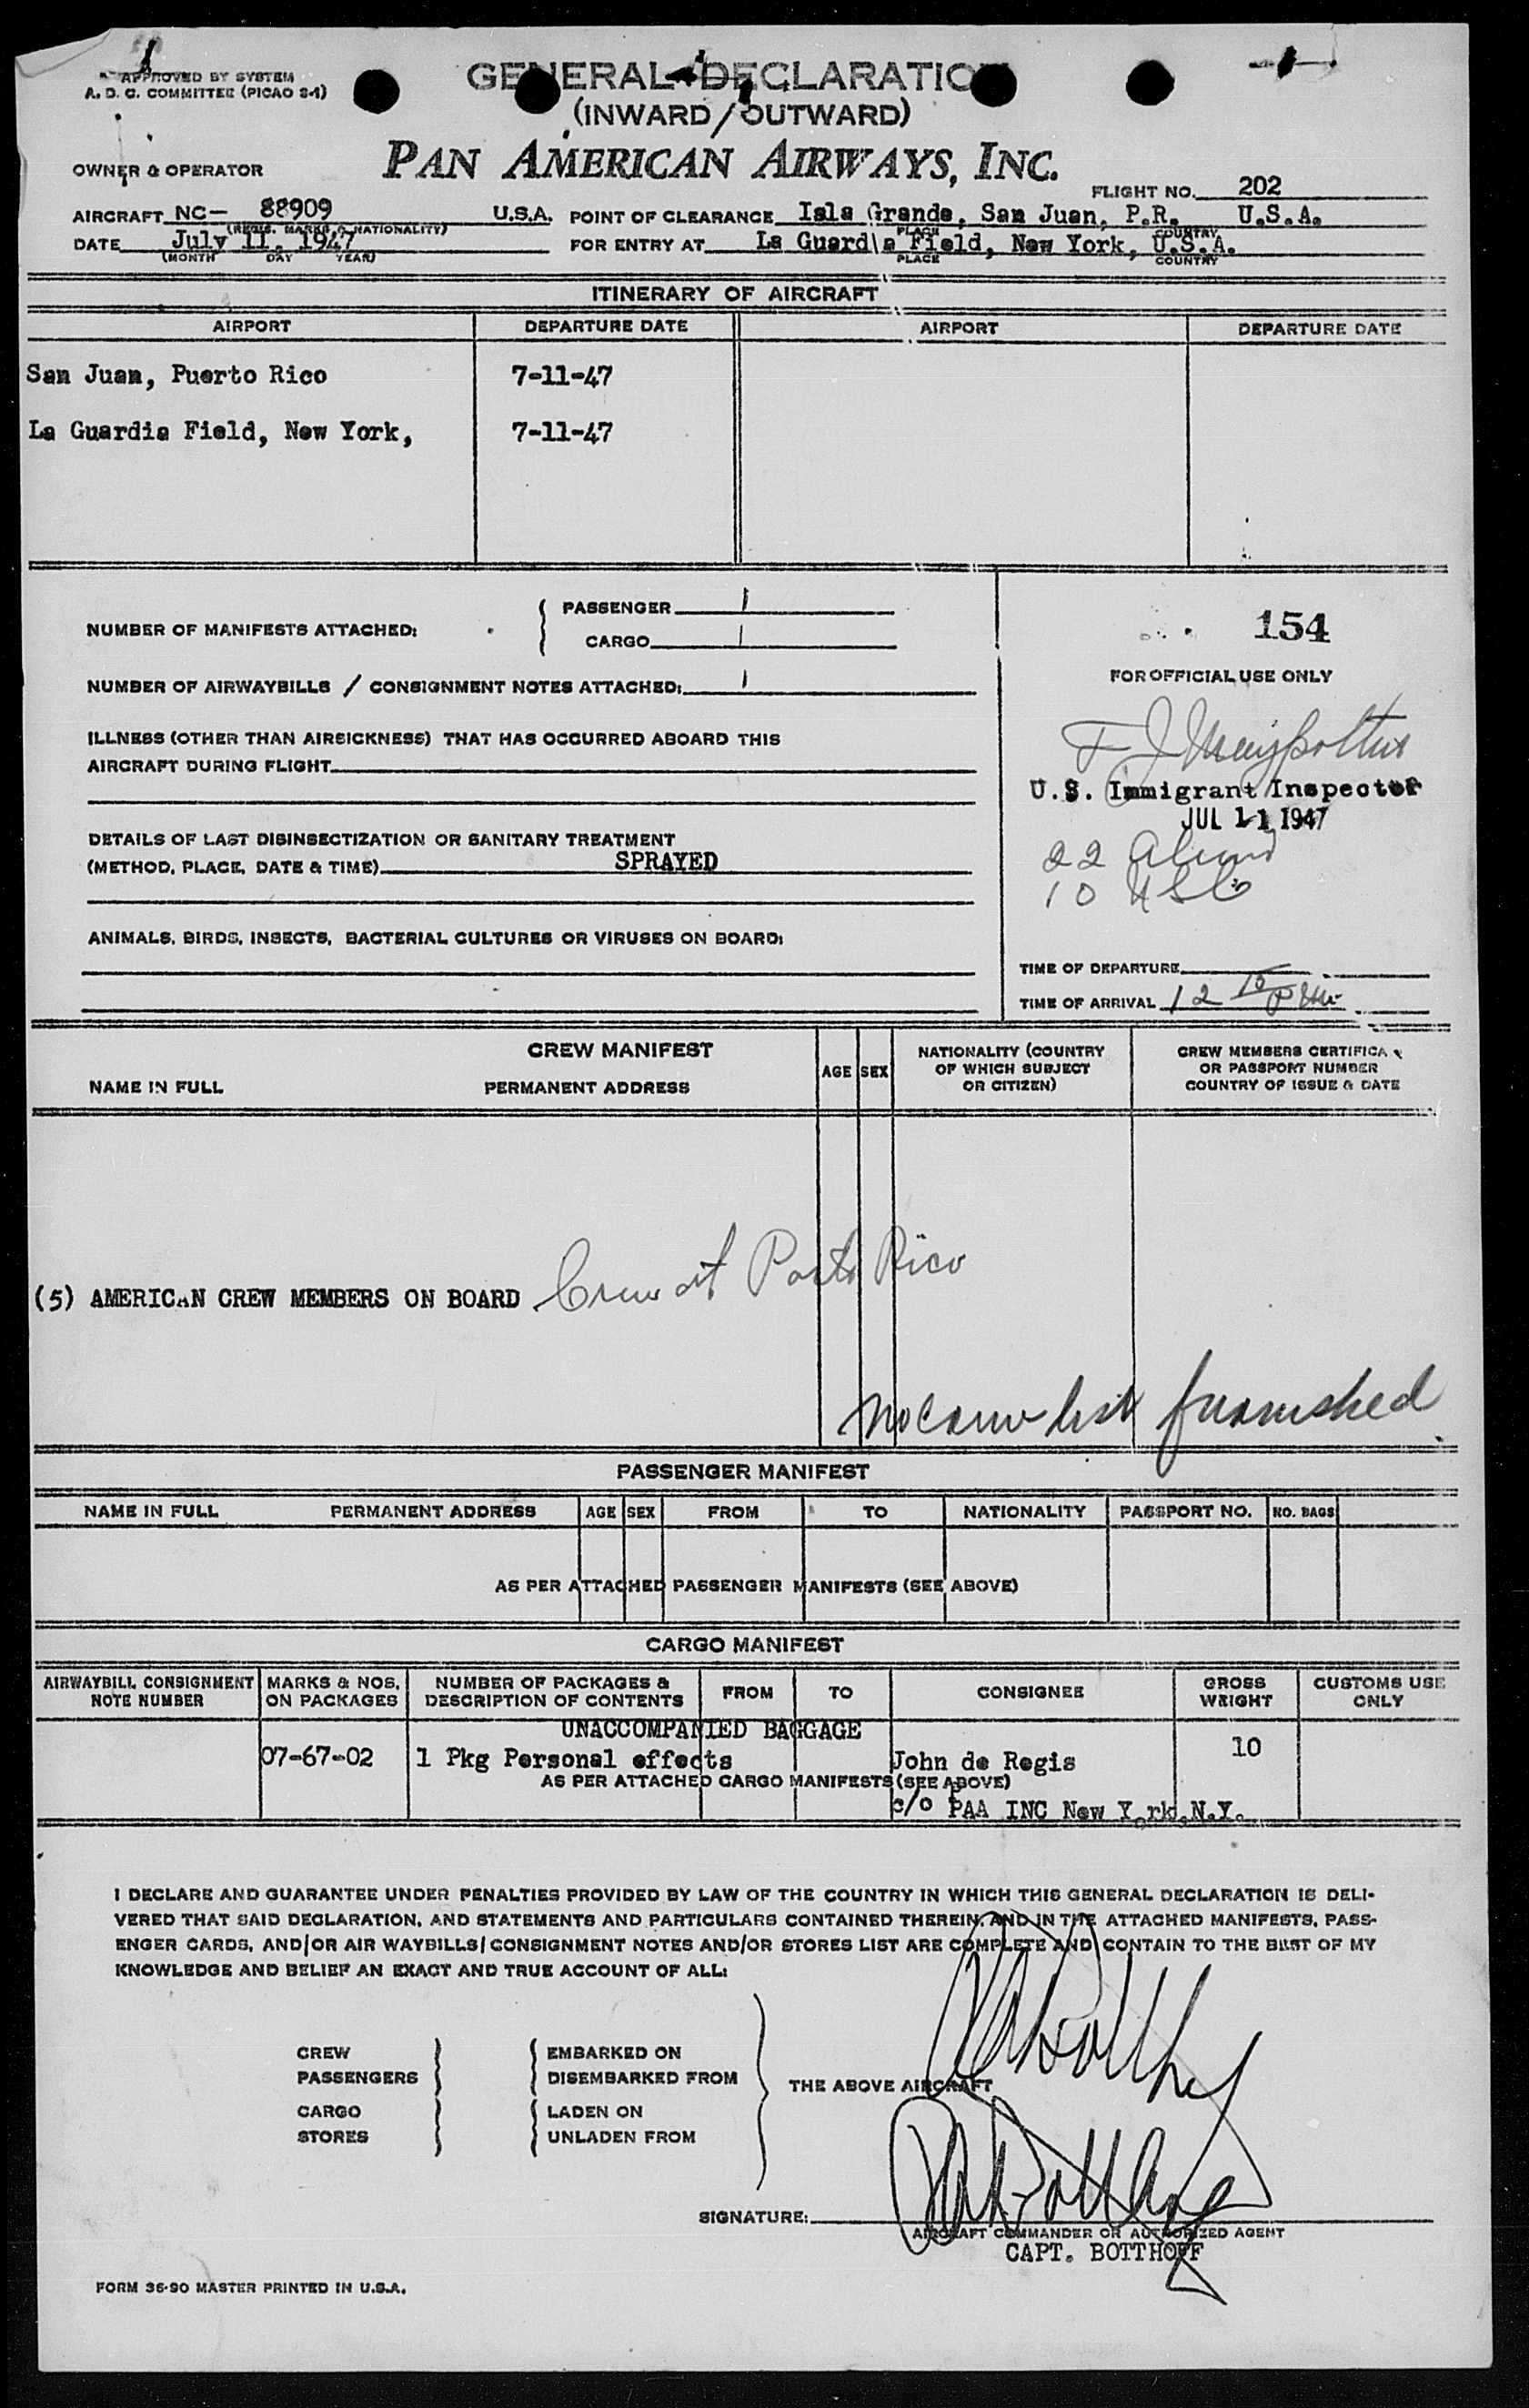 APPROVED BY SYSTEM
A. D. C. COMMITTEE (PICAO 2-1)
GENERAL DECLARATION
(INWARD/OUTWARD)
OWNER & OPERATOR
PAN AMERICAN AIRWAYS, INC.
FLIGHT NO. 202
AIRCRAFT NC- 88909 U.S.A. POINT OF CLEARANCE Isla Grande, San Juan, P.R. U.S.A.
(REGIS. MARKS & NATIONALITY) PLACE COUNTRY
DATE July 11, 1947 FOR ENTRY AT La Guardia Field, New York, U.S.A.
(MONTH DAY YEAR) PLACE COUNTRY
ITINERARY OF AIRCRAFT
AIRPORT DEPARTURE DATE AIRPORT DEPARTURE DATE
San Juan, Puerto Rico 7-11-47
La Guardia Field, New York, 7-11-47
NUMBER OF MANIFESTS ATTACHED: PASSENGER 1
CARGO 1
154
NUMBER OF AIRWAYBILLS / CONSIGNMENT NOTES ATTACHED: 1
FOR OFFICIAL USE ONLY
ILLNESS (OTHER THAN AIRSICKNESS) THAT HAS OCCURRED ABOARD THIS
AIRCRAFT DURING FLIGHT
U.S. Immigrant Inspector
JUL 11 1947
DETAILS OF LAST DISINSECTIZATION OR SANITARY TREATMENT
(METHOD, PLACE, DATE & TIME) SPRAYED
22 Aliens
10 USC
ANIMALS, BIRDS, INSECTS, BACTERIAL CULTURES OR VIRUSES ON BOARD:
TIME OF DEPARTURE
TIME OF ARRIVAL 12 10 P.M.
CREW MANIFEST
NAME IN FULL PERMANENT ADDRESS AGE SEX
NATIONALITY (COUNTRY
OF WHICH SUBJECT
OR CITIZEN)
CREW MEMBERS CERTIFICA
OR PASSPORT NUMBER
COUNTRY OF ISSUE & DATE
(5) AMERICAN CREW MEMBERS ON BOARD Crew at Porto Rico
No Crew list furnished
PASSENGER MANIFEST
NAME IN FULL PERMANENT ADDRESS AGE SEX FROM TO NATIONALITY PASSPORT NO. NO. BAGS
AS PER ATTACHED PASSENGER MANIFESTS (SEE ABOVE)
CARGO MANIFEST
AIRWAYBILL CONSIGNMENT
NOTE NUMBER
MARKS & NOS.
ON PACKAGES
NUMBER OF PACKAGES &
DESCRIPTION OF CONTENTS
FROM TO CONSIGNEE
GROSS
WEIGHT
CUSTOMS USE
ONLY
UNACCOMPANIED BAGGAGE
07-67-02 1 Pkg Personal effects John de Regis 10
AS PER ATTACHED CARGO MANIFESTS (SEE ABOVE)
c/o PAA INC New York, N.Y.
I DECLARE AND GUARANTEE UNDER PENALTIES PROVIDED BY LAW OF THE COUNTRY IN WHICH THIS GENERAL DECLARATION IS DELI-
VERED THAT SAID DECLARATION, AND STATEMENTS AND PARTICULARS CONTAINED THEREIN, AND IN THE ATTACHED MANIFESTS, PASS-
ENGER CARDS, AND/OR AIR WAYBILLS/CONSIGNMENT NOTES AND/OR STORES LIST ARE COMPLETE AND CONTAIN TO THE BEST OF MY
KNOWLEDGE AND BELIEF AN EXACT AND TRUE ACCOUNT OF ALL:
CREW EMBARKED ON
PASSENGERS DISEMBARKED FROM
THE ABOVE AIRCRAFT
CARGO LADEN ON
STORES UNLADEN FROM
SIGNATURE:
AIRCRAFT COMMANDER OR AUTHORIZED AGENT
CAPT. BOTTHOFF
FORM 36-90 MASTER PRINTED IN U.S.A.